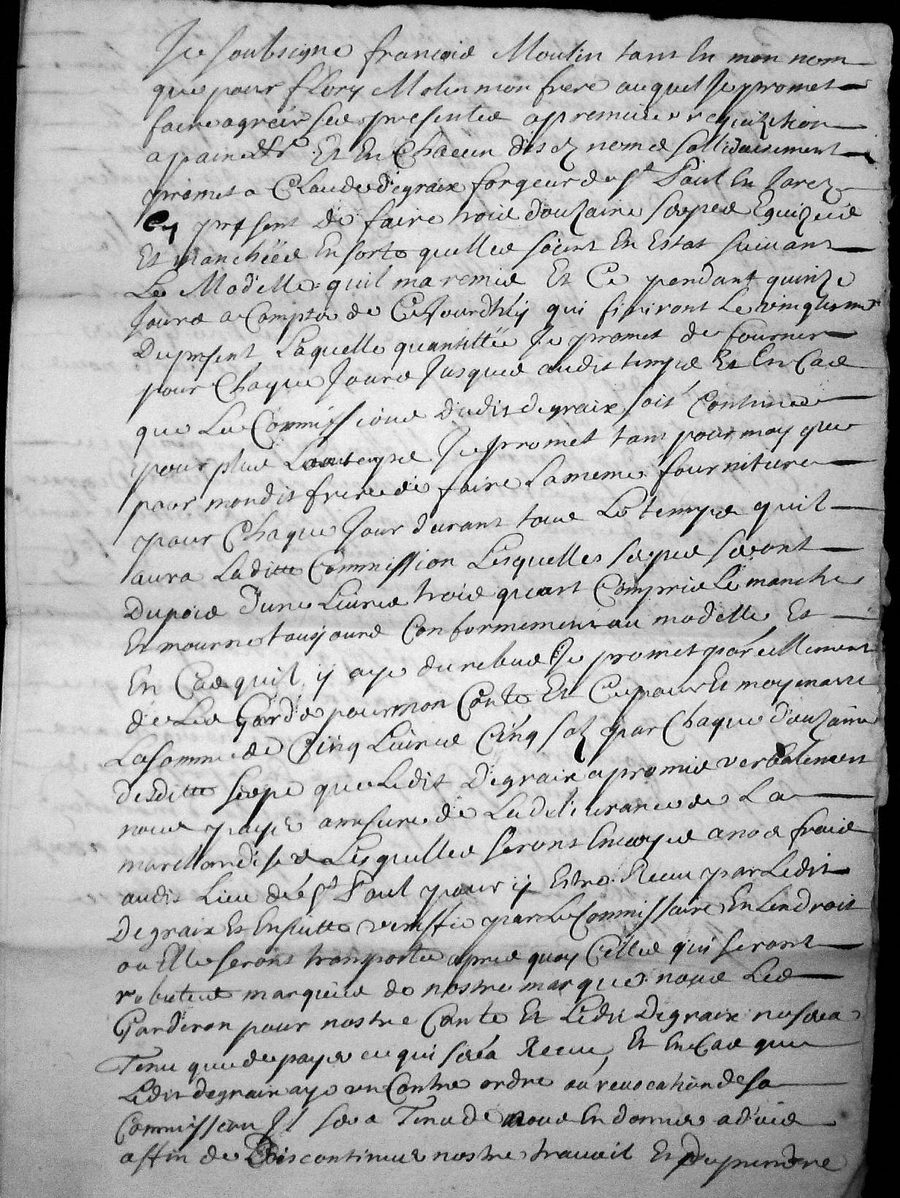 Je soubsigne françois Moulin tant en mon nom
que pour fLory Molin mon frere auquel Je promet
faire agreér ses presentes a premiere requizition
a paine &c Et En Chacun disez nomes sollidairement
promet a Claude degraix forgeur de St Paul En Jarez
Cy present de faire trois douzaine serpes Eguizées
Et manchées En sorte quelles soint En Estat suivant
Le Modelle quil ma remis Et Ce pendant quinze
Jours a Compter de Cejourdhuy qui finiront Le vingtieme
Du present Laquelle quantittée Je promet de fournir
pour Chaque Jours Jusques audit temps Et En Cas
que La Commissione dudit degraix soit Continuée
pour plus Longtemps Je promet tant pour moy que
pour mondit frere de faire La meme fourniture
pour Chaque Jour durant tous Le temps quil
aura Laditte Commission Lesquelles serpes seront
Du pois d'une Livres trois quart Compris Le manche
Et mourne toujours Conformement au modelle Et
En Cas quil y aye du rebus Je promet pareillement
de Les Garder pour mon Conte Et Ce pour Et moyenant
La somme de Cinq Livres Cinq solz par Chaque douzaine
desditte serpe que Ledit Degraix a promis verbalement
nous payer amesure de La delivrance de La
marchandise Lesquelles seront Envoyes a nos frais
audit Lieu de St Paul pour y Estre Receu par Ledit
Degraix Et Ensuitte veriffié par Le Commissaire En Lendroit
ou Elle seront transportée apres quoy Celles qui seront
rebutées marquées de nostre marque nous Les
Garderon pour nostre Conte Et Ledit Degraix ne sera
Tenu que de payer ce qui sera Receu Et En Cas que
Ledit degraix aye un Contre ordre ou revocation de sa
Commission Il sera Tenu de nous En donner advis
affin de Discontinuer nostre travail Et prendre